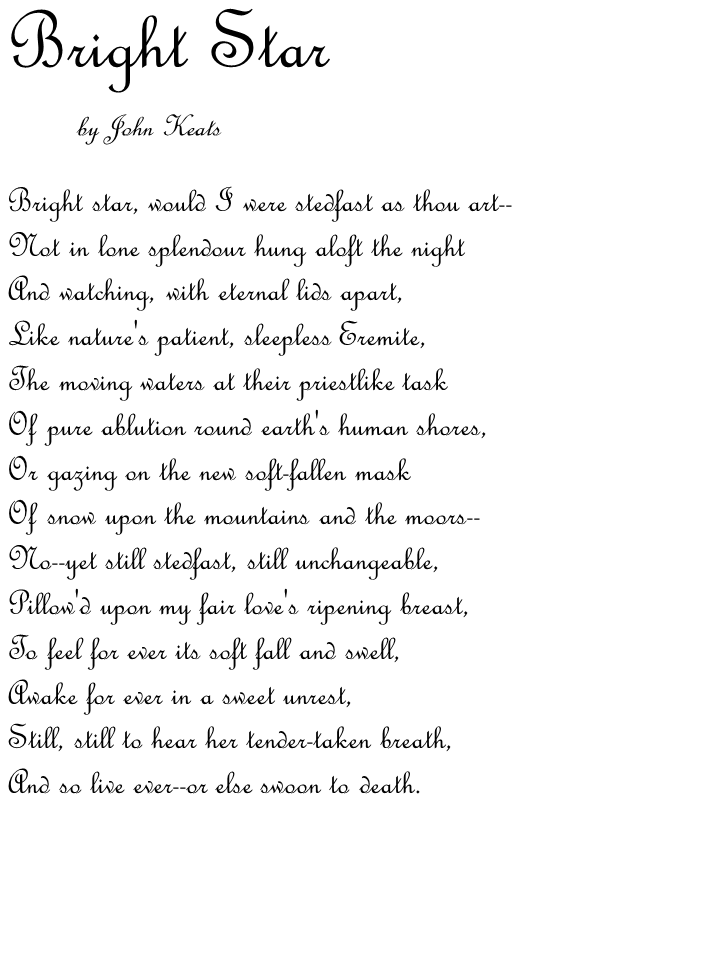 Bright Star
by John Keats
Bright star, would I were stedfast as thou art--
Not in lone splendour hung aloft the night
And watching, with eternal lids apart,
Like nature's patient, sleepless Eremite,
The moving waters at their priestlike task
Of pure ablution round earth's human shores,
Or gazing on the new soft-fallen mask
Of snow upon the mountains and the moors--
No--yet still stedfast, still unchangeable,
Pillow'd upon my fair love's ripening breast,
To feel for ever its soft fall and swell,
Awake for ever in a sweet unrest,
Still, still to hear her tender-taken breath,
And so live ever--or else swoon to death.